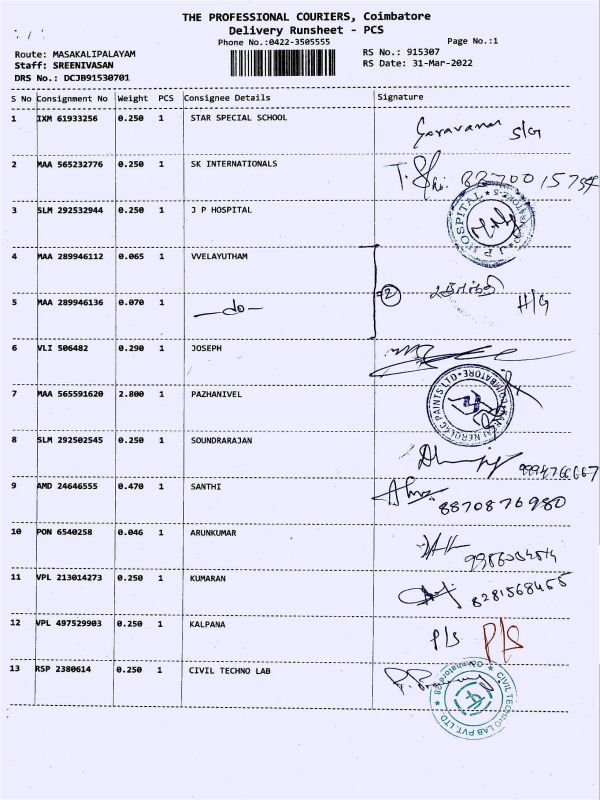 THE PROFESSIONAL COURIERS, Coimbatore
Delivery Runsheet - PCS
Phone No.:0422-3505555 Page No.:1
Route: MASAKALIPALAYAM RS No.: 915307
Staff: SREENIVASAN RS Date: 31-Mar-2022
DRS No.: DCJB91530701
S No Consignment No Weight PCS Consignee Details Signature
1 IXM 61933256 0.250 1 STAR SPECIAL SCHOOL S/G
2 MAA 565232776 0.250 1 SK INTERNATIONALS
3 SLM 292532944 0.250 1 J P HOSPITAL
J P HOSPITAL
4 MAA 289946112 0.065 1 VVELAYUTHAM
2 H/G
5 MAA 289946136 0.070 1 —do—
6 VLI 506482 0.290 1 JOSEPH
7 MAA 565591620 2.800 1 PAZHANIVEL
KANSAI NEROLAC PAINTS LTD COIMBATORE
8 SLM 292502545 0.250 1 SOUNDRARAJAN
9 AMD 24646555 0.470 1 SANTHI 8870876980
10 PON 6540258 0.046 1 ARUNKUMAR
11 VPL 213014273 0.250 1 KUMARAN 8281568455
12 VPL 497529903 0.250 1 KALPANA P/S P/S
13 RSP 2380614 0.250 1 CIVIL TECHNO LAB
CIVIL TECHNO LAB PVT. LTD